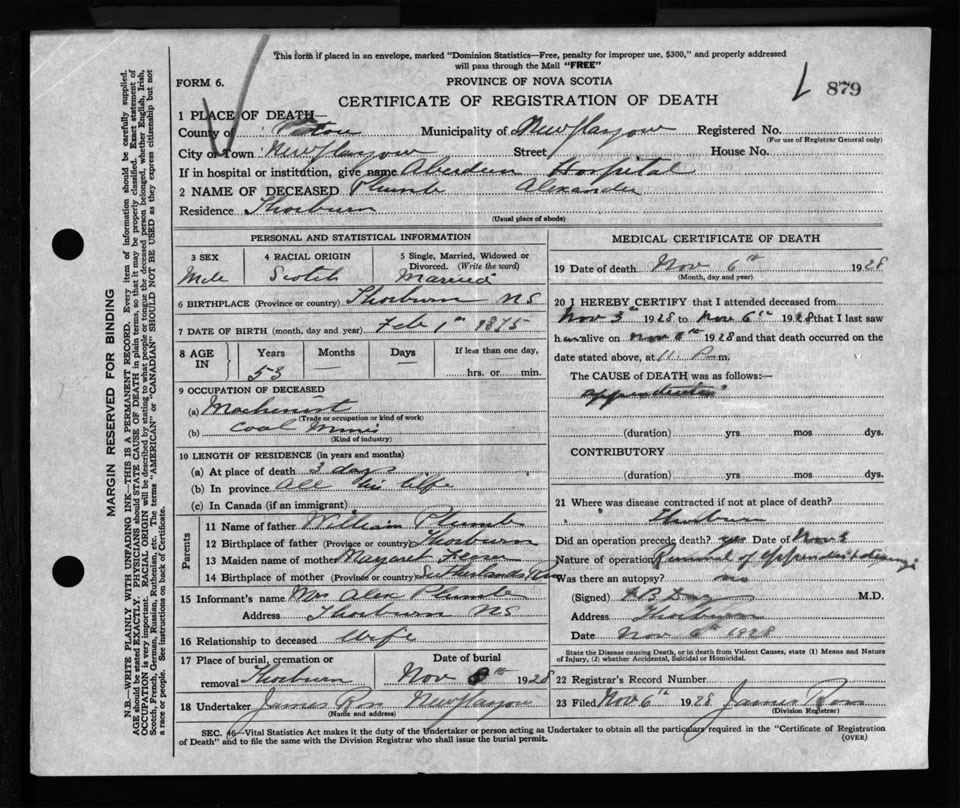 This form if placed in an envelope, marked "Dominion Statistics—Free, penalty for improper use, $300," and properly addressed
will pass through the Mail "FREE"
FORM 6.
PROVINCE OF NOVA SCOTIA
879
CERTIFICATE OF REGISTRATION OF DEATH
1 PLACE OF DEATH
County of Pictou Municipality of New Glasgow Registered No.
(For use of Registrar General only)
City or Town New Glasgow Street House No.
If in hospital or institution, give name Aberdeen Hospital
2 NAME OF DECEASED Plumb Alexander
Residence Thorburn
(Usual place of abode)
PERSONAL AND STATISTICAL INFORMATION
3 SEX 4 RACIAL ORIGIN 5 Single, Married, Widowed or
Divorced. (Write the word)
Male Scotch Married
6 BIRTHPLACE (Province or country) Thorburn NS
7 DATE OF BIRTH (month, day and year) Feb 1st 1875
8 AGE IN Years Months Days If less than one day,
53 — hrs. or min.
9 OCCUPATION OF DECEASED
(a) Machinist
(Trade or occupation or kind of work)
(b) Coal Mines
(Kind of industry)
10 LENGTH OF RESIDENCE (in years and months)
(a) At place of death 3 days
(b) In province All his life
(c) In Canada (if an immigrant)
Parents
11 Name of father William Plumb
12 Birthplace of father (Province or country) Thorburn
13 Maiden name of mother Margaret
14 Birthplace of mother (Province or country) Sutherlands River
15 Informant's name Mrs Alex Plumb
Address Thorburn NS
16 Relationship to deceased Wife
17 Place of burial, cremation or Date of burial
removal Thorburn Nov 8th 1928
18 Undertaker James Ross New Glasgow
(Name and address)
MEDICAL CERTIFICATE OF DEATH
19 Date of death Nov 6th 1928
(Month, day and year)
20 I HEREBY CERTIFY that I attended deceased from
Nov 3rd 1928 to Nov 6th 1928 that I last saw
him alive on Nov 6th 1928 and that death occurred on
date stated above, at 11 P m.
The CAUSE of DEATH was as follows:—
appendicitis
(duration) yrs mos dys.
CONTRIBUTORY
(duration) yrs mos dys.
21 Where was disease contracted if not at place of death?
Thorburn
Did an operation precede death? yes Date of Nov
Nature of operation Removal of appendix
Was there an autopsy? no
(Signed) M.D.
Address Thorburn
Date Nov 1928
State the Disease causing Death, or in death from Violent Causes, state (1) Means and Nature
of Injury, (2) whether Accidental, Suicidal or Homicidal.
22 Registrar's Record Number
23 Filed Nov 6th 1928 James Ross
(Division Registrar)
SEC. 46—Vital Statistics Act makes it the duty of the Undertaker or person acting as Undertaker to obtain all the particulars required in the "Certificate of Registration
of Death" and to file the same with the Division Registrar who shall issue the burial permit.
(OVER)
MARGIN RESERVED FOR BINDING
N.B.—WRITE PLAINLY WITH UNFADING INK—THIS IS A PERMANENT RECORD. Every item of information should be carefully supplied.
AGE should be stated EXACTLY. PHYSICIANS should STATE CAUSE OF DEATH in plain terms, so that it may be properly classified. Exact statement of
OCCUPATION is very important. RACIAL ORIGIN will be described by stating to what people or tongue the deceased person belonged, whether English, Irish,
Scotch, French, German, Russian, Ruthenian, etc. The terms "AMERICAN" or "CANADIAN" SHOULD NOT BE USED as they express citizenship but not
a race or people. See instructions on back of Certificate.